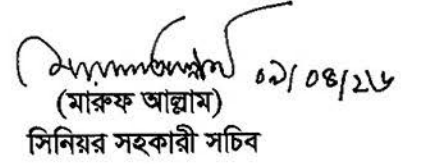 ০৯/০৪/২৬
(মারুফ আল্লাম)
সিনিয়র সহকারী সচিব